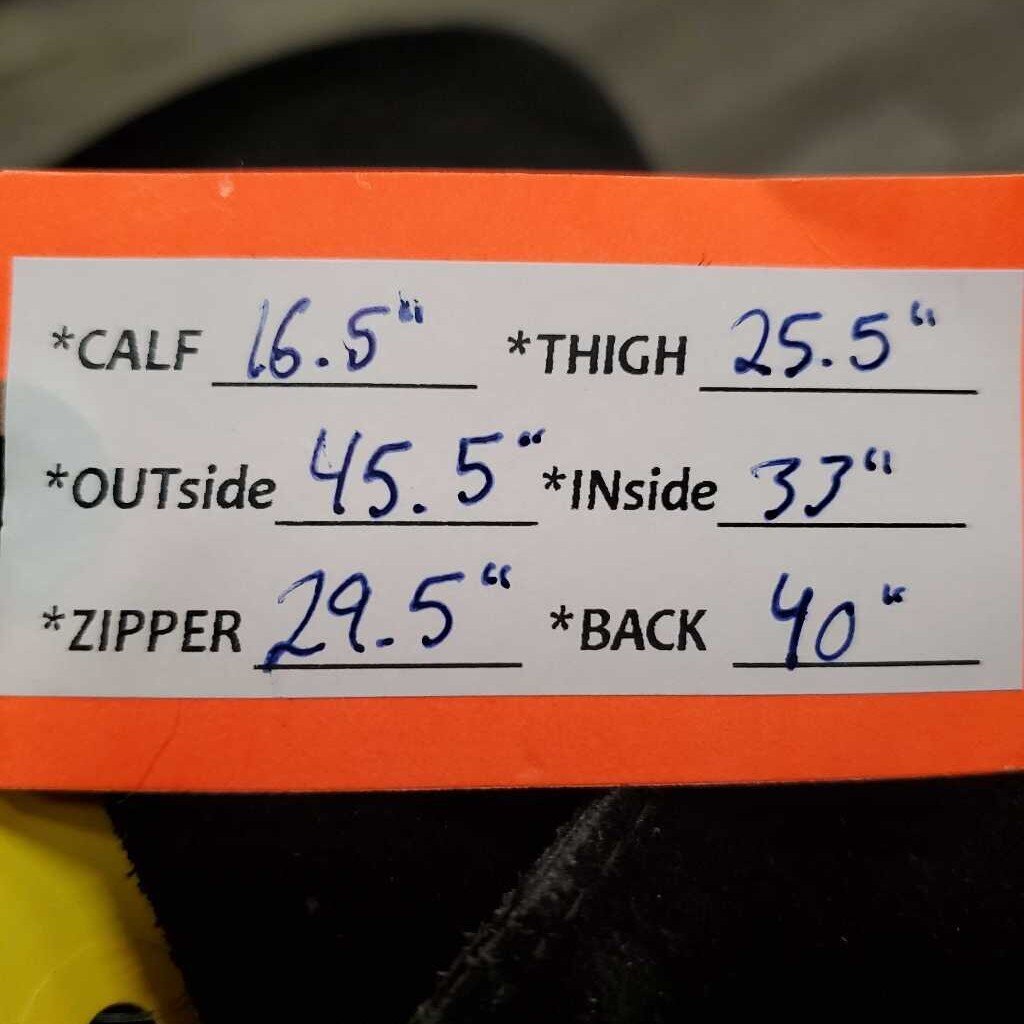 *CALF 16.5" *THIGH 25.5"
*OUTside 45.5" *INside 33"
*ZIPPER 29.5" *BACK 40"